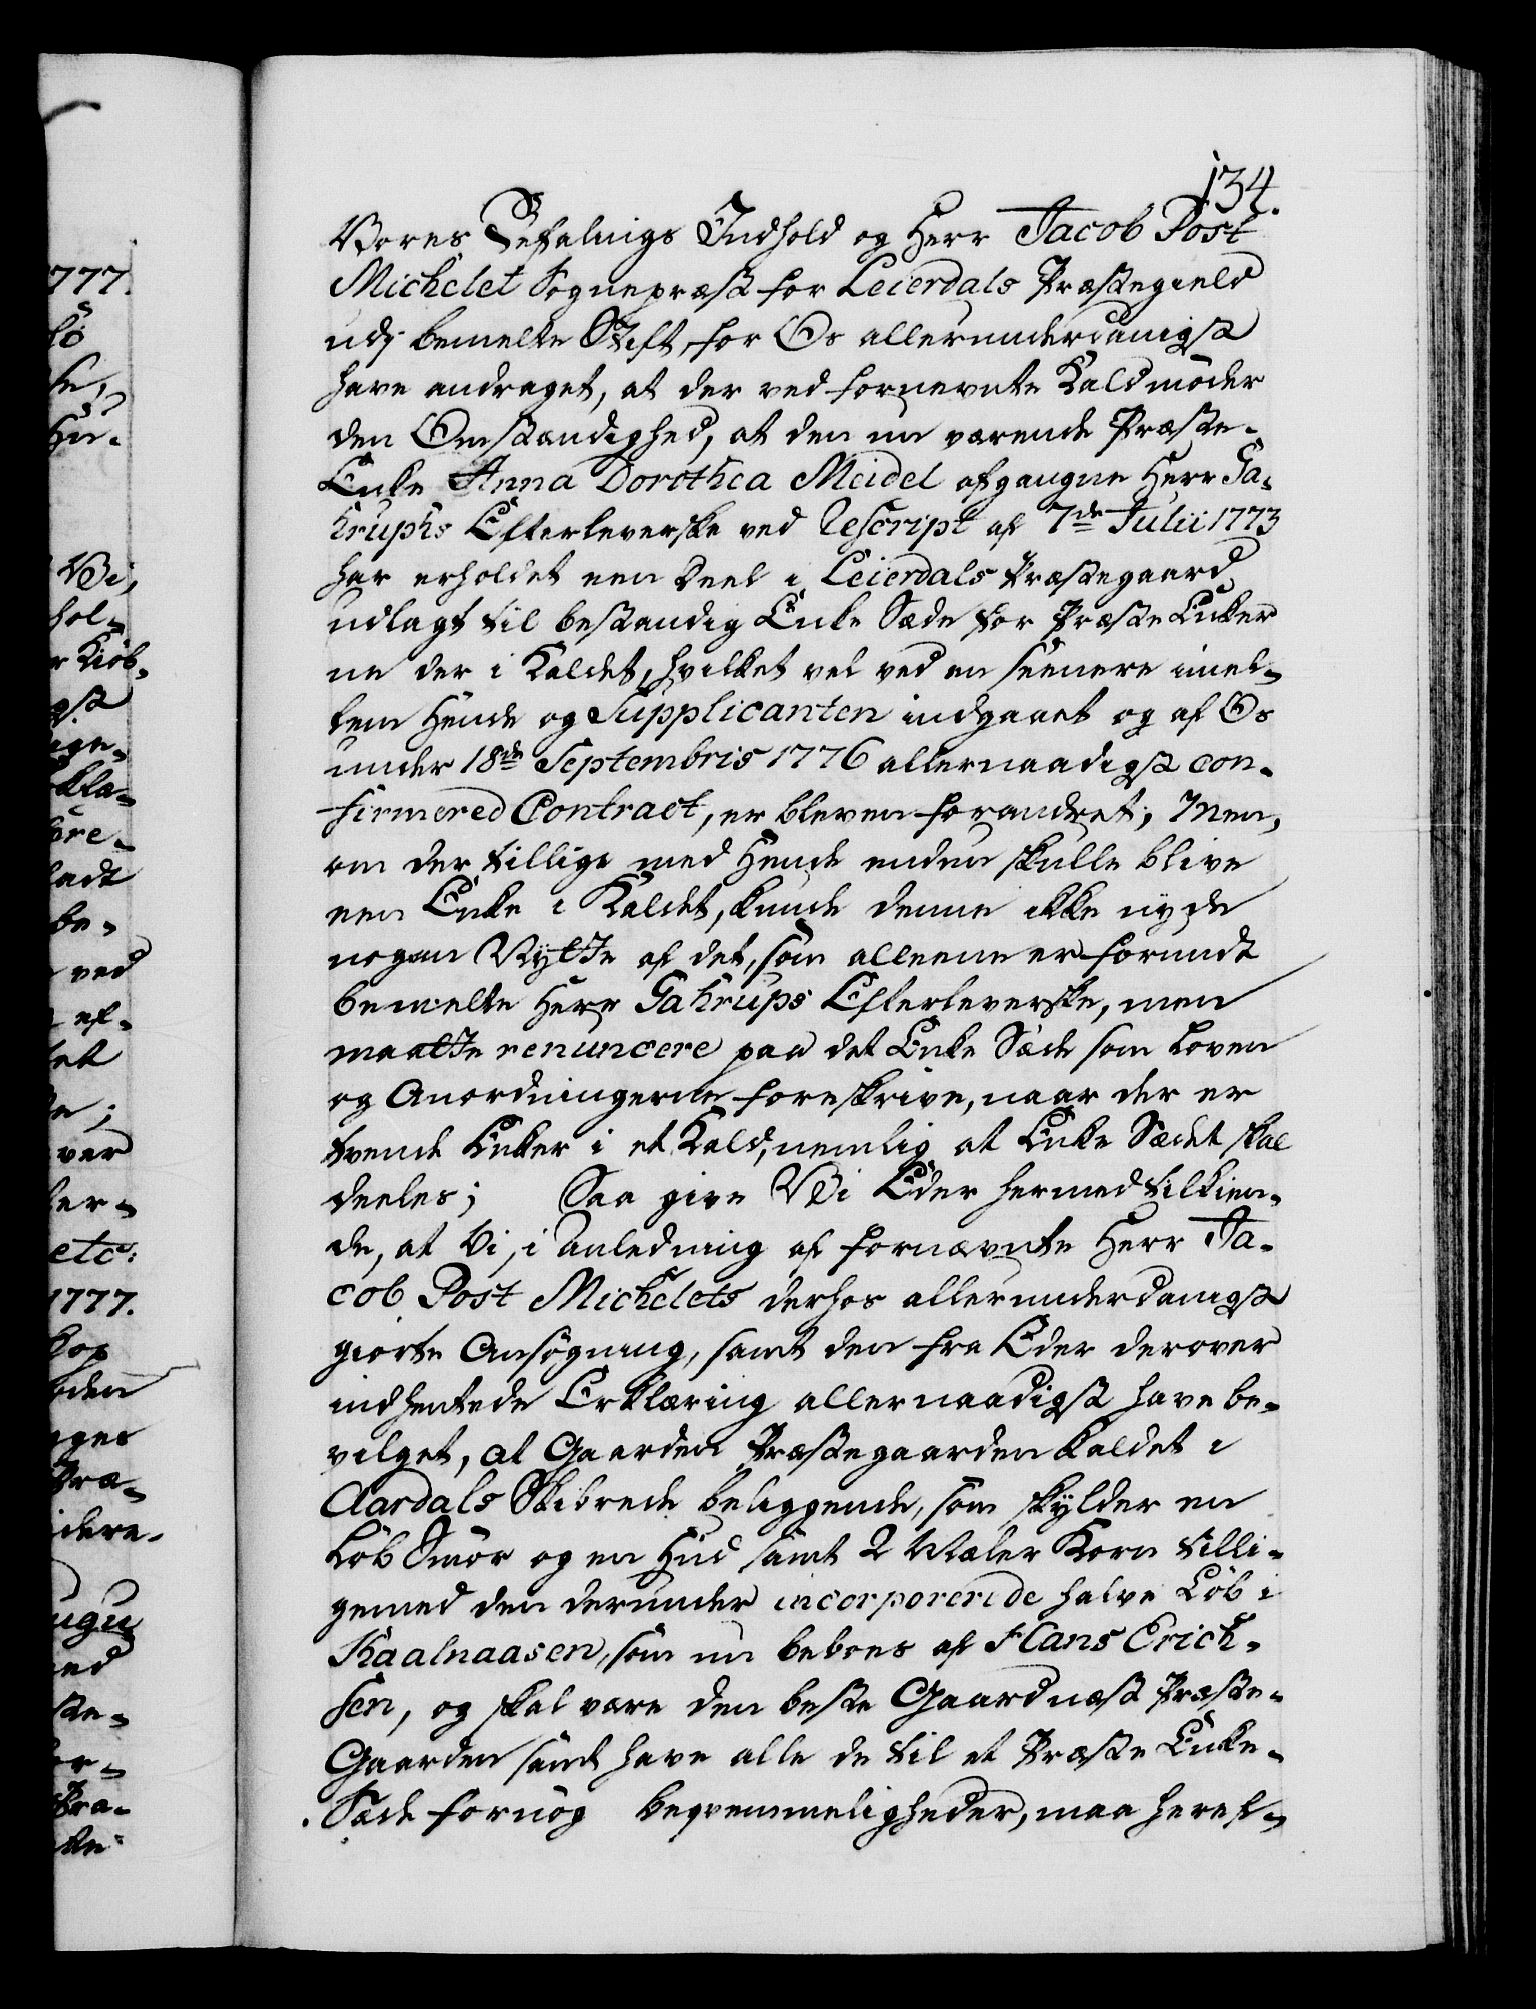 134.
Vores Befalnings Indhold og Herr Jacob Post
Michelet Sognepræst for Leierdals Præstegield
udj bemelte Stift, for Os allerunderdanigst
have andraget, at der ved fornevnte Kald møder
den Omstændighed, at den nu værende Præste-
Enke Anna Dorothea Meidel afgangne Herr Ga-
krups Efterleverske ved Rescript af 7de Julii 1773
har erholdet een Deel i Leierdals Præstegaard
udlagt til bestandig Enke Sæde for Præste Enker
ne der i Kaldet, hvilket vel ved en seenere imel-
lem Hende og Supplicanten indgaaet og af Os
under 18de Septembris 1776 allernaadigst con-
firmered Contract, er bleven forandret; Men,
om der tillige med Hende enden skulle blive
een Enke i Kaldet, kunde denne ikke nyde
nogen Nytte af det, som alleene er forundt
bemelte Herr Gahrups Efterleverske, men
maatte renuncere paa det Enke Sæde som Loven
og Anordningerne foreskrive, naar der er
tvende Enker i et Kald, nemlig at Enke Sædet skal
deeles; Saa give Vi Eder hermed tilkien-
de, at Vi, i Anledning af fornævnte Herr Ja-
cob Post Michelets derhos allerunderdanigst
giorte Ansøgning, samt den fra Eder derover
indhentede Erklæring allernaadigst have be-
vilget, at Gaarden Præstegaarden kaldet i
Aardals Skibrede beliggende, som skylder en
Løb Smør og en Hud samt 2 Mæler Korn tilli-
gemed den derunder incorporerede halve Løb i
Kaalnaasen, som nu beboes af Hans Erich-
sen, og skal være den beste Gaard næst Præste-
Gaarden samt have alle de til et Præste Enke-
Sæde fornøg beqvemmeligheder, maa heref-
1777.
Vi,
hol-
r Kiøb-
gst
fore-
ladt
be-
ved
ef-
et
ver
etc:
1777.
oden
Præ-
idere-
ste-